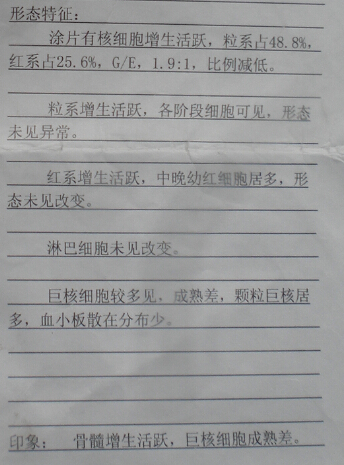 形态特征：
涂片有核细胞增生活跃，粒系占48.8%，
红系占25.6%，G/E，1.9:1，比例减低。
粒系增生活跃，各阶段细胞可见，形态
未见异常。
红系增生活跃，中晚幼红细胞居多，形
态未见改变。
淋巴细胞未见改变。
巨核细胞较多见，成熟差，颗粒巨核居
多，血小板散在分布少。
印象：　骨髓增生活跃，巨核细胞成熟差。